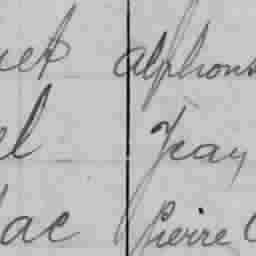 uet alphons
el Jean
lac Pierre